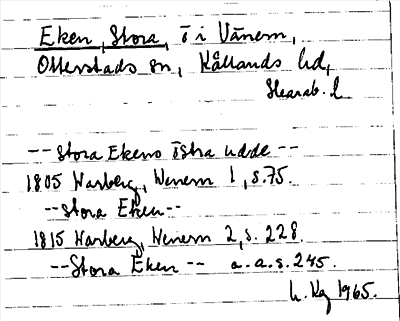 Eken, Stora, ö i Vänern,
Otterstads sn, Kållands hd,
Skarab. l
--Stora Ekens östra udde--
1805 Warberg, Wenern 1, s.75.
--Stora Eken--
1815 Warberg, Wenern 2, s. 228
--Stora Eken -- a.a.s. 245.
1965.